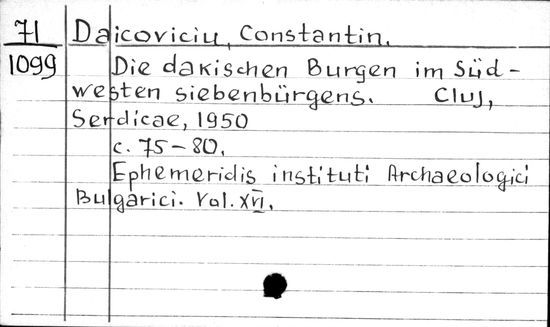 71 Daicoviciu, Constantin.
1099 Die dakischen Burgen im Süd-
westen siebenbürgens. Cluj,
Serdicae, 1950
c. 75-80.
Ephemeridis instituti Archaeologici
Bulgarici. Vol. XVI.